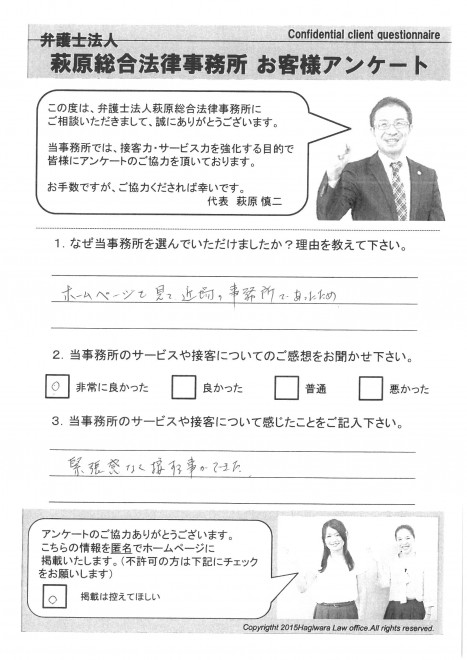 Confidential client questionnaire
弁護士法人
萩原総合法律事務所 お客様アンケート
この度は、弁護士法人萩原総合法律事務所に
ご相談いただきまして、誠にありがとうございます。
当事務所では、接客力・サービス力を強化する目的で
皆様にアンケートのご協力を頂いております。
お手数ですが、ご協力くだされば幸いです。
代表 萩原 慎二
1. なぜ当事務所を選んでいただけましたか?理由を教えて下さい。
ホームページで見て近所の事務所であったため
2. 当事務所のサービスや接客についてのご感想をお聞かせ下さい。
○ 非常に良かった 良かった 普通 悪かった
3. 当事務所のサービスや接客について感じたことをご記入下さい。
緊張感なく接する事ができた
アンケートのご協力ありがとうございます。
こちらの情報を匿名でホームページに
掲載いたします。(不許可の方は下記にチェック
をお願いします)
○ 掲載は控えてほしい
Copyrightht 2015Hagiwara Law office.All rights reserved.